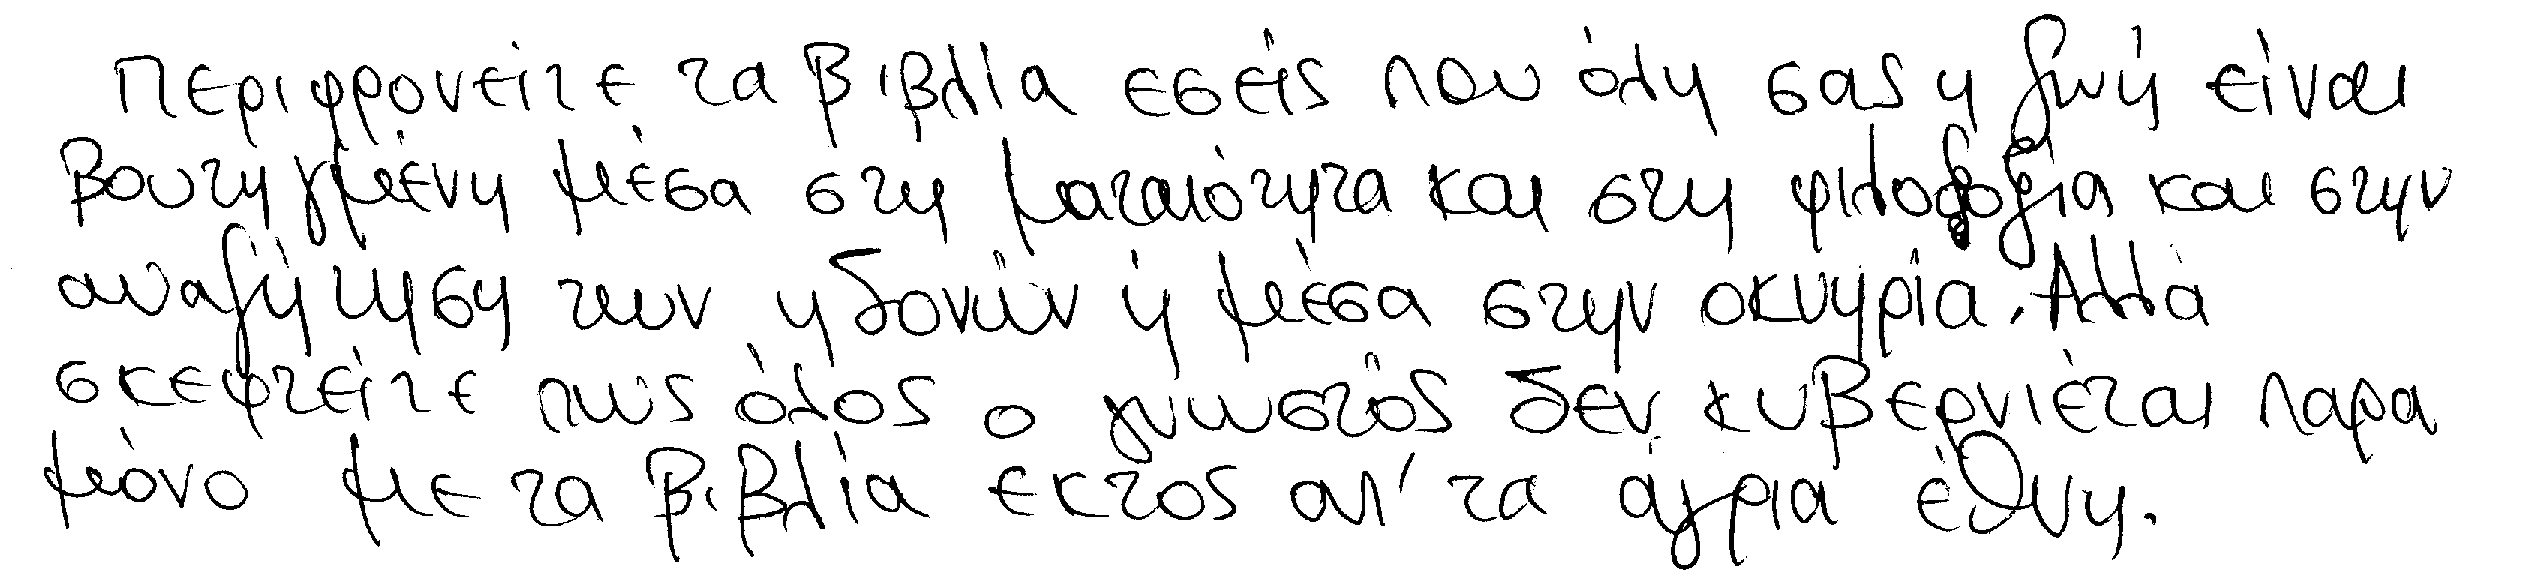 Περιφρονείτε τα βιβλία εσείς που όλη σας η ζωή είναι
βουτηγμένη μέσα στη ματαιότητα και στη φιλοδοξία και στην
αναζήτηση των ηδονών ή μέσα στην οκνηρία. Αλλά
σκεφτείτε πως όλος ο γνωστός δεν κυβερνιέται παρα
μόνο με τα βιβλία εκτος απ' τα άγρια έθνη.